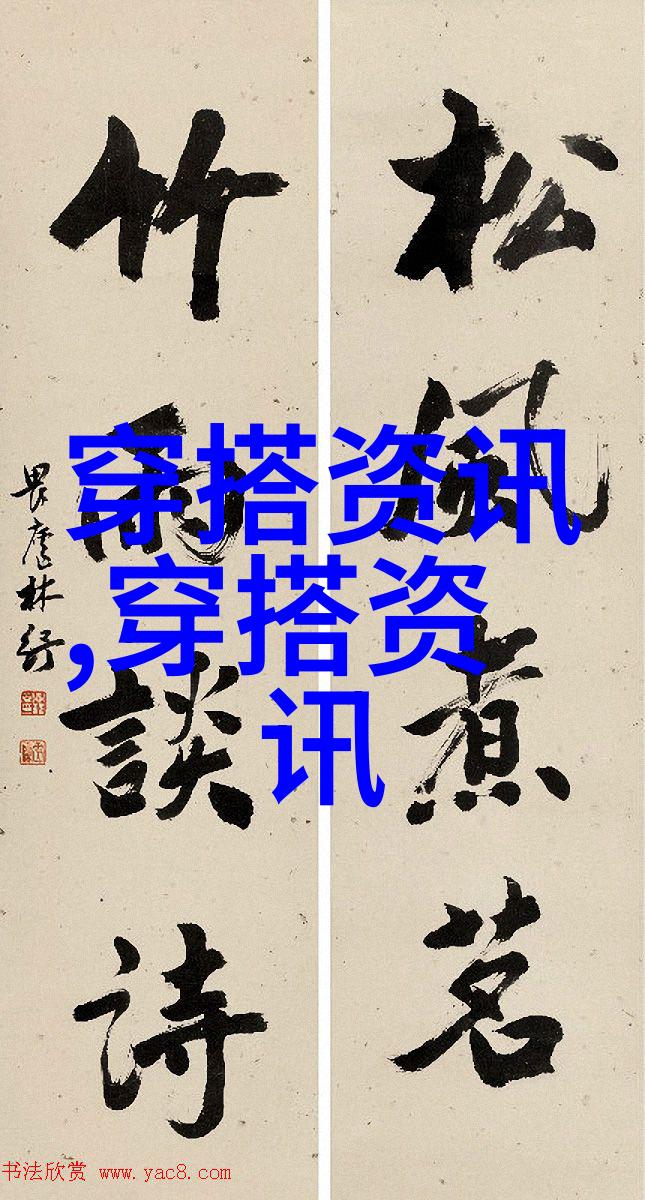 松風煮茗
竹雨談詩
畏廬林紓
穿搭资讯
,穿搭资
讯
书法欣赏 www.yac8.com